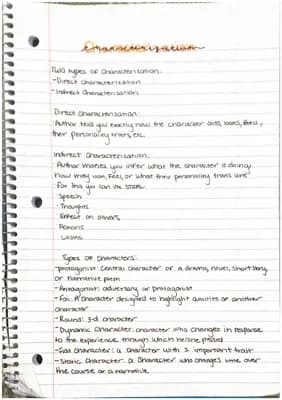 Characterization
Two types of Characterization:
-Direct Characterization
-Indirect Characterization
Direct Characterization:
-Author tells you exactly how the character acts, looks, feels,
their personality traits, etc.
Indirect Characterization:
Author makes you infer what the character is doing
how they look, feel, or what their personality traits are
For this you can use STEAL
Speech
Thoughts
Effect on others
Actions
Looks
Types of characters:
-protagonist: Central character of a drama, novel, short story
or narrative poem
-Antagonist: adversary of protagonist
-Foil: A character designed to highlight qualities of another
character
-Round: 3-d character
-Dynamic Character: character who changes in response
to the experience through which he/she passed
-Flat Character: a character with 1 important trait
-Static Character: a character who changes little over
the course of a narrative.